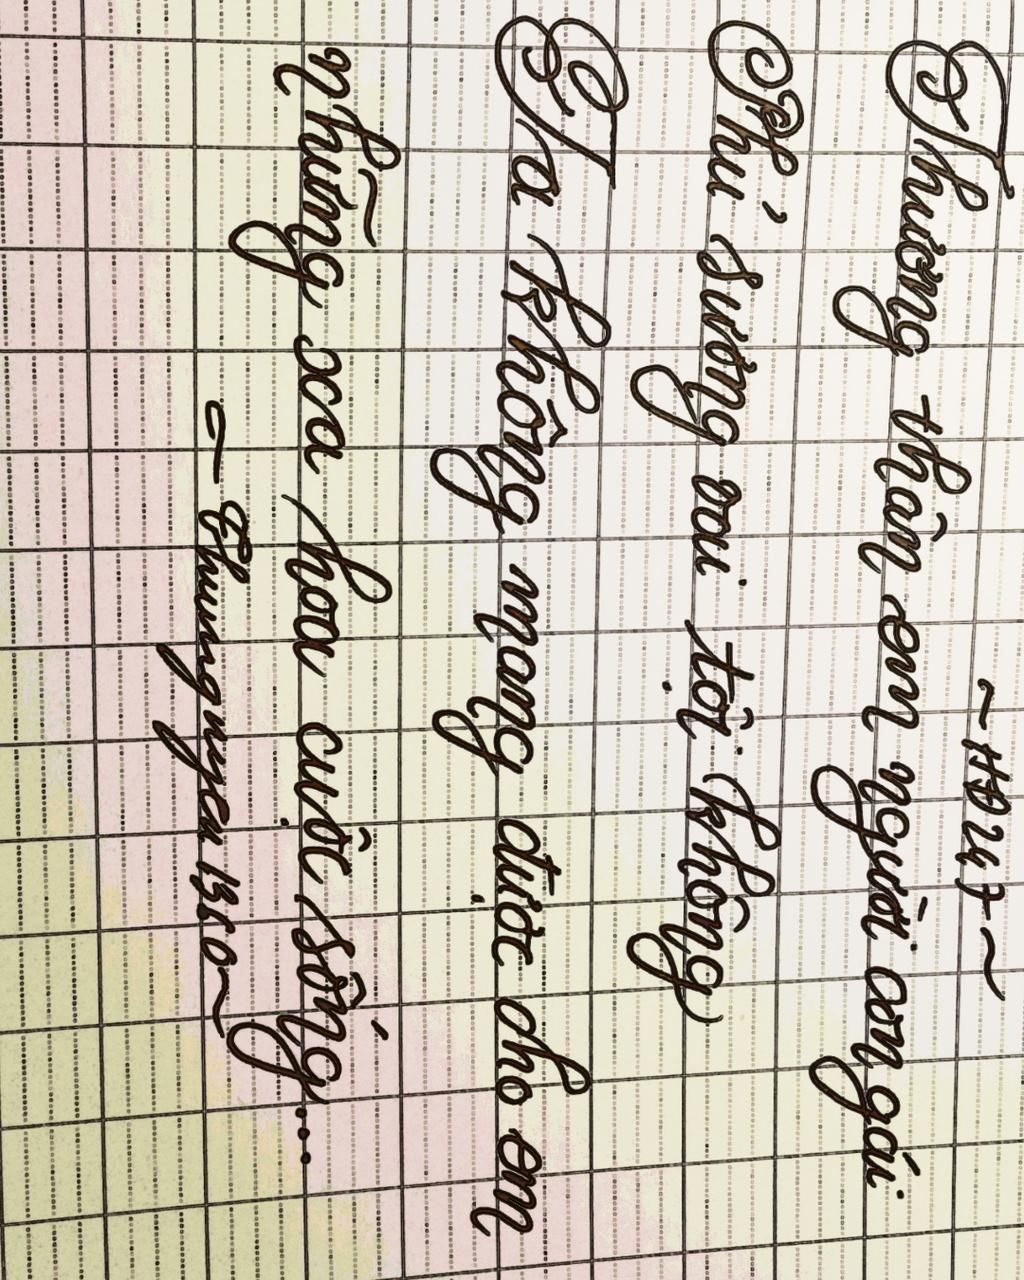 ~ HĐ247 ~
Thương thầm em người con gái
Phú sương oai tội không
Ta không mong được cho em
Những xa hoa cuộc sống...
~ Phungnguyen 1350 ~